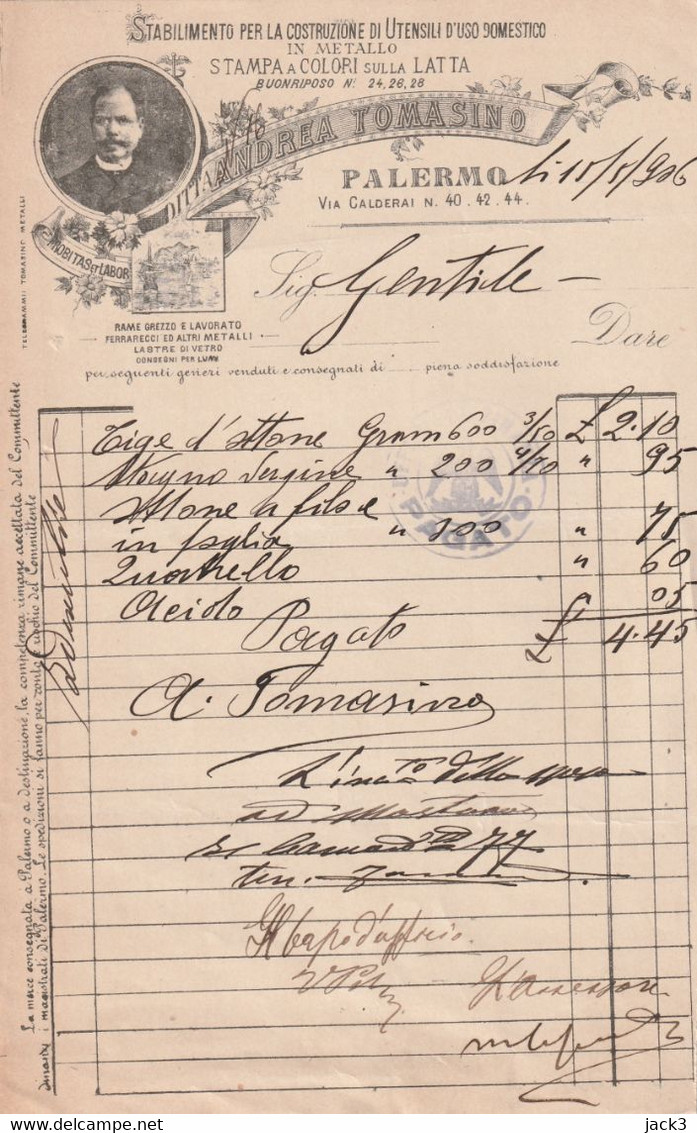 STABILIMENTO PER LA COSTRUZIONE DI UTENSILI D'USO DOMESTICO
IN METALLO
STAMPA A COLORI SULLA LATTA
BUONRIPOSO Ni 24, 26, 28
DITTA ANDREA TOMASINO
PALERMO li 15/5/906
VIA CALDERAI N. 40. 42. 44.
NOBITAS et LABOR
TELEGRAMMI TOMASINO METALLI
Sig. Gentile
RAME GREZZO E LAVORATO
FERRARECCI ED ALTRI METALLI
LASTRE DI VETRO
CONGEGNI PER LUMI
Dare
per seguenti generi venduti e consegnati di piena soddisfazione
Tige d'ottone Gram 600 3/50 £ 2.10
Stagno Vergine " 200 4/70 " 95
Ottone a filo e
in foglia " 200 " 75
Quadrello " 60
Acido 05
Pagato £ 4.45
PAGATO
A. Tomasino
L'inca.to della spesa
ten.
Il Capo d'ufficio
L'assessore
La merce consegnata a Palermo o a destinazione, la competenza rimane accettata del Committente
dinanzi i magistrati di Palermo. Le spedizioni si fanno per conto e rischio del Committente
jack3